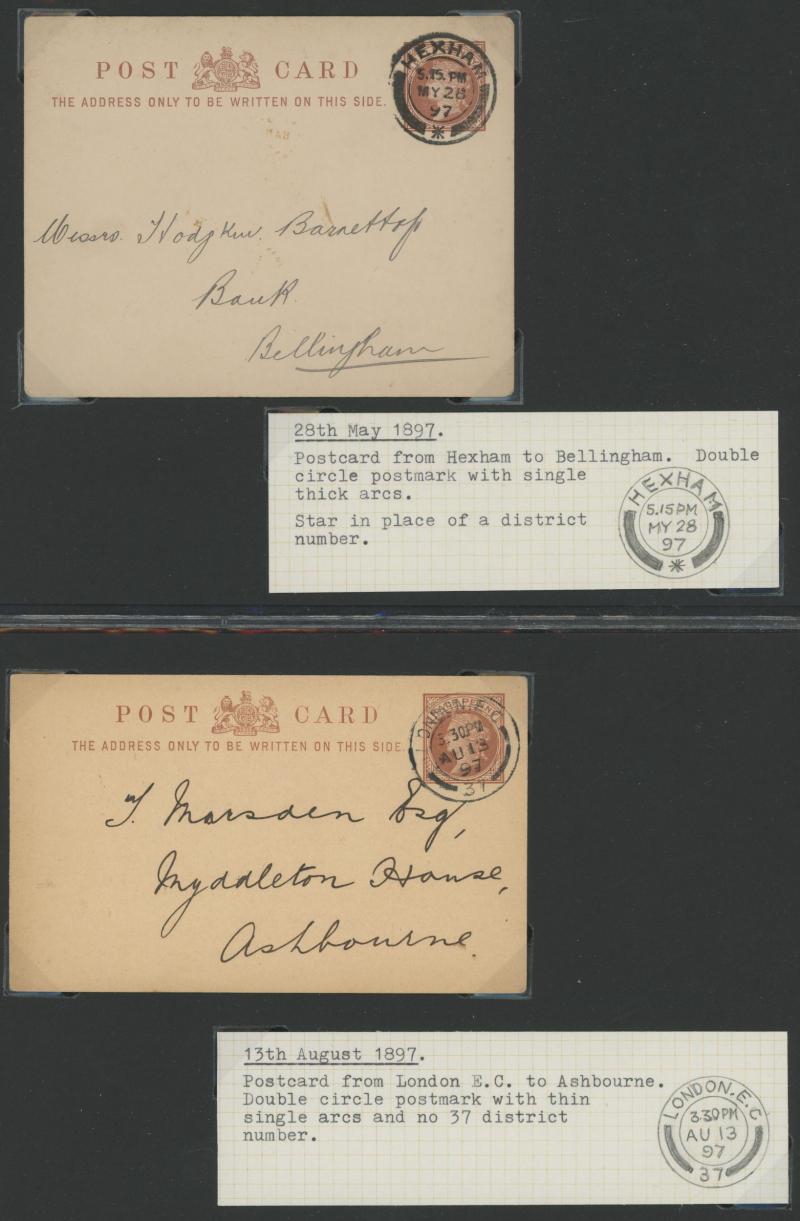 POST CARD
THE ADDRESS ONLY TO BE WRITTEN ON THIS SIDE.
HEXHAM
5.15.PM
MY 28
97
Messrs. Hodgkin. Barnett
Bank.
Bellingham
28th May 1897.
Postcard from Hexham to Bellingham. Double
circle postmark with single
thick arcs.
Star in place of a district
number.
HEXHAM
5.15PM
MY 28
97
POST CARD
THE ADDRESS ONLY TO BE WRITTEN ON THIS SIDE.
LONDON.E.C
3.30PM
AU 13
97
37
T. Marsden Esq,
Myddleton House,
Ashbourne.
13th August 1897.
Postcard from London E.C. to Ashbourne.
Double circle postmark with thin
single arcs and no 37 district
number.
LONDON.E.C
3.30PM
AU 13
97
37